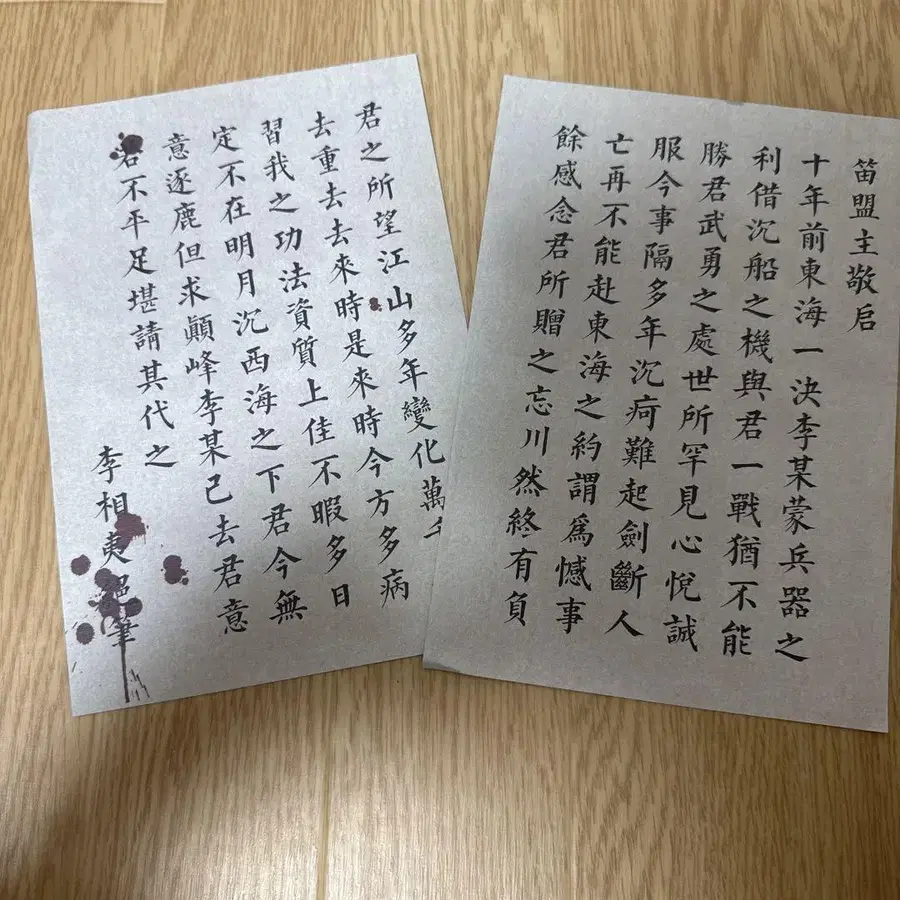 笛盟主敬启
十年前東海一決李某蒙兵器之
利借沉船之機與君一戰猶不能
勝君武勇之處世所罕見心悅誠
服今事隔多年沉疴難起劍斷人
亡再不能赴東海之約謂爲憾事
餘感念君所贈之忘川然終有負
君之所望江山多年變化萬千
去重去去來時是來時今方多病
習我之功法資質上佳不暇多日
定不在明月沉西海之下君今無
意逐鹿但求顚峰李某已去君意
若不平足堪請其代之
李相夷絕筆